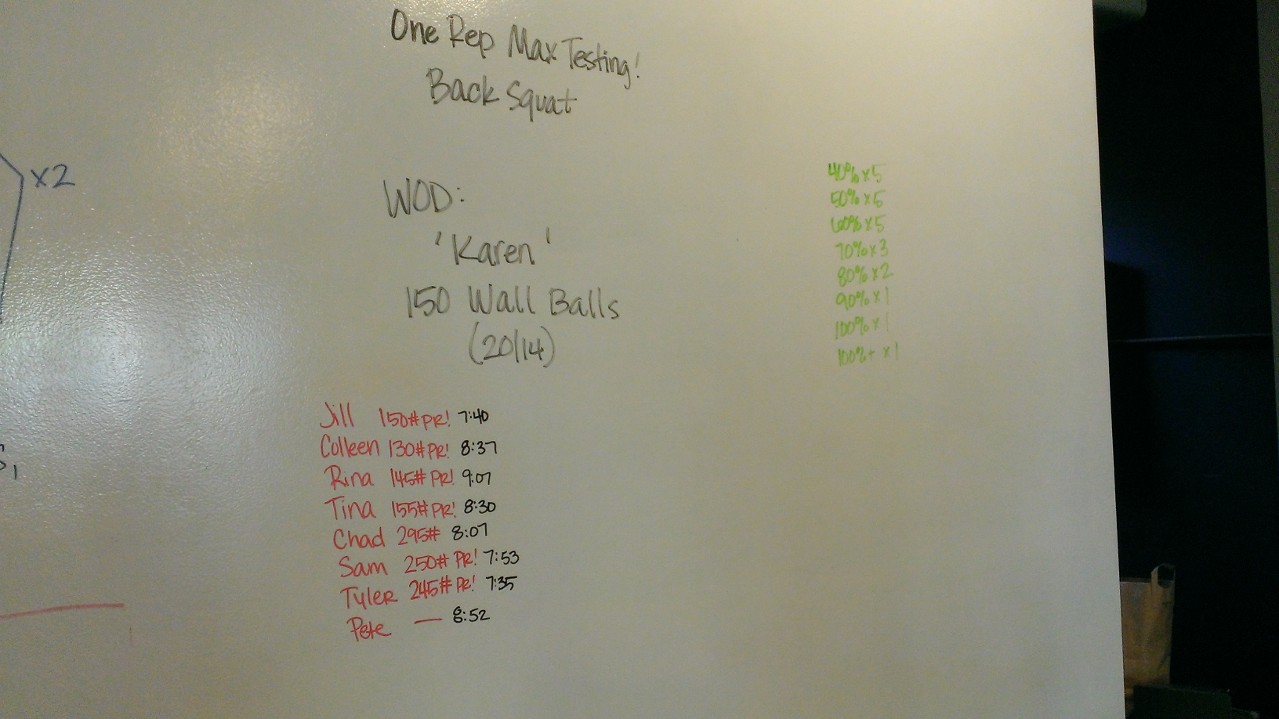 One Rep Max Testing!
Back Squat
x2
WOD:
'Karen'
150 Wall Balls
(20/14)
40% x5
50% x5
60% x5
70% x3
80% x2
90% x1
100% x1
100%+ x1
Jill 150# PR! 7:40
Colleen 130# PR! 8:37
Rina 145# PR! 9:07
Tina 155# PR! 8:30
Chad 295# 8:07
Sam 250# PR! 7:53
Tyler 245# PR! 7:35
Pete — 8:52